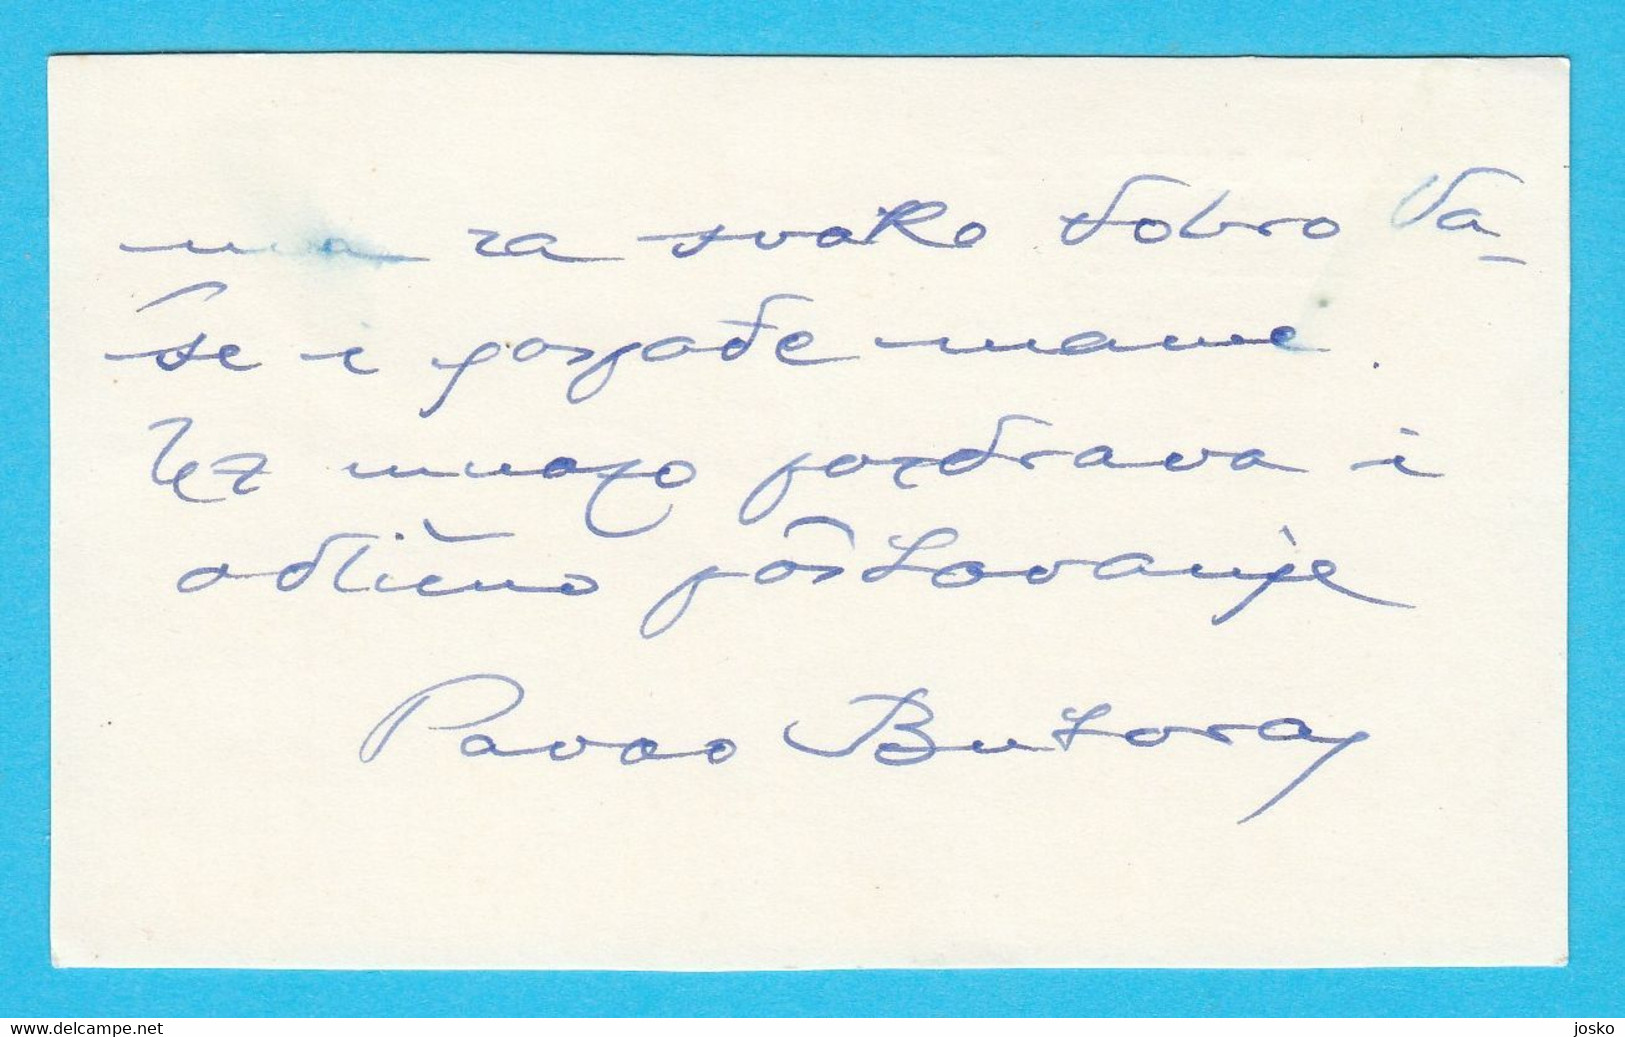 ma za svako dobro Va-
še i gospođe mame.
Uz mnogo pozdrava i
odlično poštovanje
Pavao Butorac
www.delcampe.net
josko